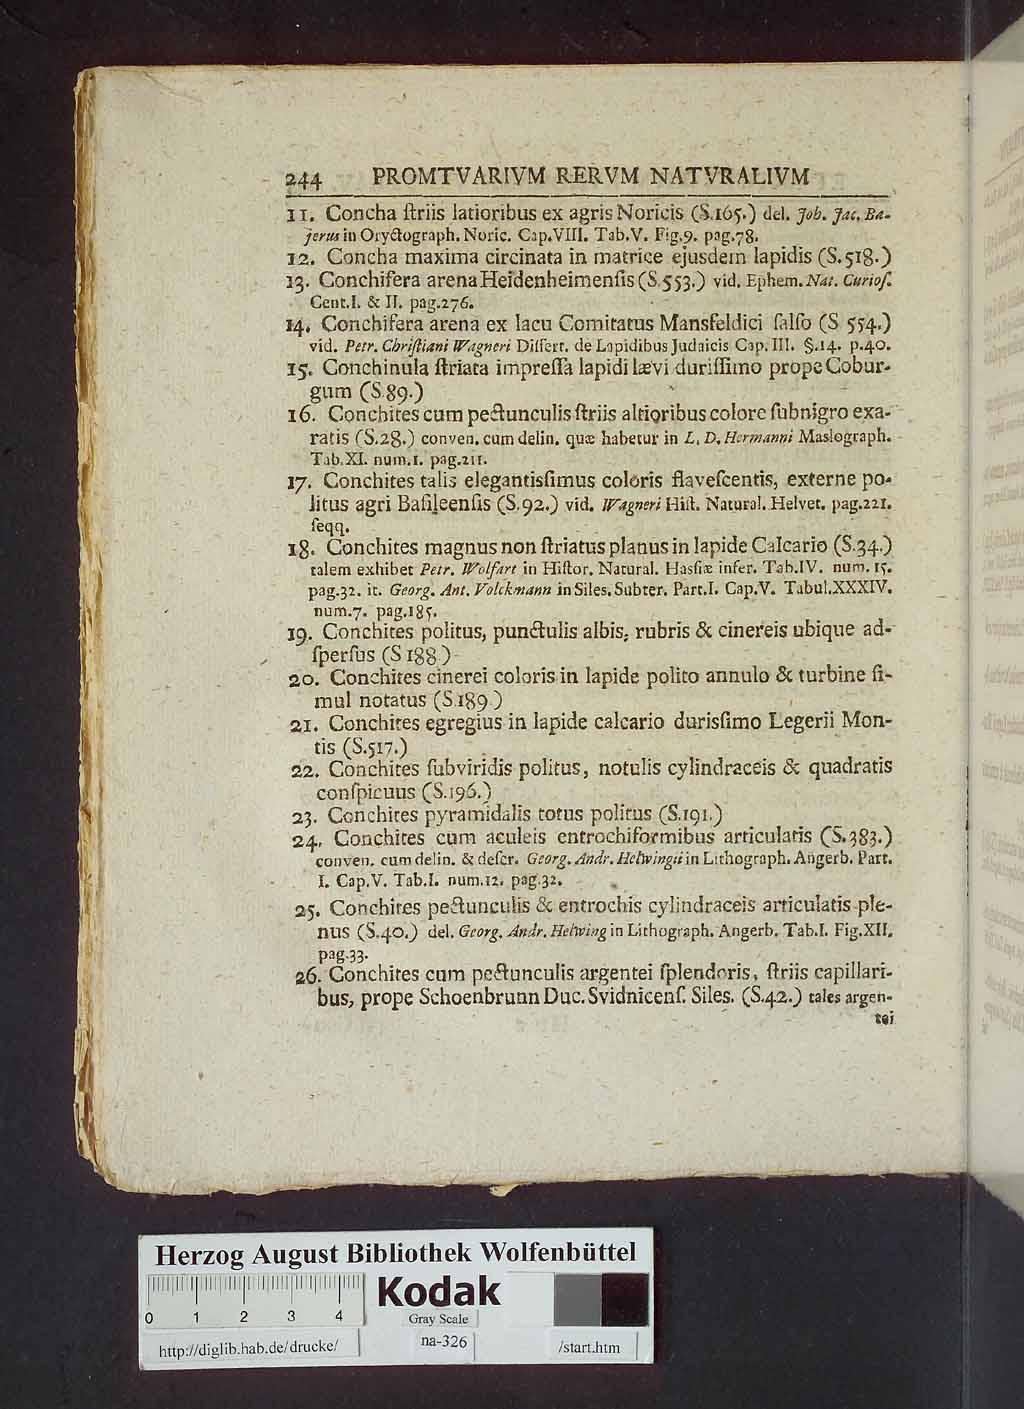 244 PROMTVARIVM RERVM NATVRALIVM
11. Concha ſtriis latioribus ex agris Noricis (S.165.) del. Joh. Jac. Ba-
jerus in Oryctograph. Noric. Cap.VIII. Tab.V. Fig.9. pag.78.
12. Concha maxima circinata in matrice ejusdem lapidis (S.518.)
13. Conchifera arena Heidenheimenſis (S.553.) vid. Ephem. Nat. Curioſ.
Cent.I. & II. pag.276.
14. Conchifera arena ex lacu Comitatus Mansfeldici ſalſo (S 554.)
vid. Petr. Chriſtiani Wagneri Diſſert. de Lapidibus Judaicis Cap. III. §.14. p.40.
15. Conchinula ſtriata impreſſa lapidi lævi duriſſimo prope Cobur-
gum (S.89.)
16. Conchites cum pectunculis ſtriis altioribus colore ſubnigro exa-
ratis (S.28.) conven. cum delin. quæ habetur in L. D. Hermanni Maslograph.
Tab.XI. num.1. pag.211.
17. Conchites talis elegantisſimus coloris flaveſcentis, externe po-
litus agri Baſileenſis (S.92.) vid. Wagneri Hiſt. Natural. Helvet. pag.221.
ſeqq.
18. Conchites magnus non ſtriatus planus in lapide Calcario (S.34.)
talem exhibet Petr. Wolfart in Hiſtor. Natural. Hasſiæ infer. Tab.IV. num. 15.
pag.32. it. Georg. Ant. Volckmann in Siles. Subter. Part.I. Cap.V. Tabul.XXXIV.
num.7. pag.185.
19. Conchites politus, punctulis albis, rubris & cinereis ubique ad-
ſperſus (S 188.)
20. Conchites cinerei coloris in lapide polito annulo & turbine ſi-
mul notatus (S.189.)
21. Conchites egregius in lapide calcario durisſimo Legerii Mon-
tis (S.517.)
22. Conchites ſubviridis politus, notulis cylindraceis & quadratis
conſpicuus (S.196.)
23. Conchites pyramidalis totus politus (S.191.)
24. Conchites cum aculeis entrochiformibus articulatis (S.383.)
conven. cum delin. & deſcr. Georg. Andr. Helwingii in Lithograph. Angerb. Part.
I. Cap.V. Tab.I. num.12. pag.32.
25. Conchites pectunculis & entrochis cylindraceis articulatis ple-
nus (S.40.) del. Georg. Andr. Helwing in Lithograph. Angerb. Tab.I. Fig.XII.
pag.33.
26. Conchites cum pectunculis argentei ſplendoris, ſtriis capillari-
bus, prope Schoenbrunn Duc. Svidnicenſ. Siles. (S.42.) tales argen-
tei
Herzog August Bibliothek Wolfenbüttel
0 1 2 3 4
Kodak
Gray Scale
http://diglib.hab.de/drucke/ na-326 /start.htm